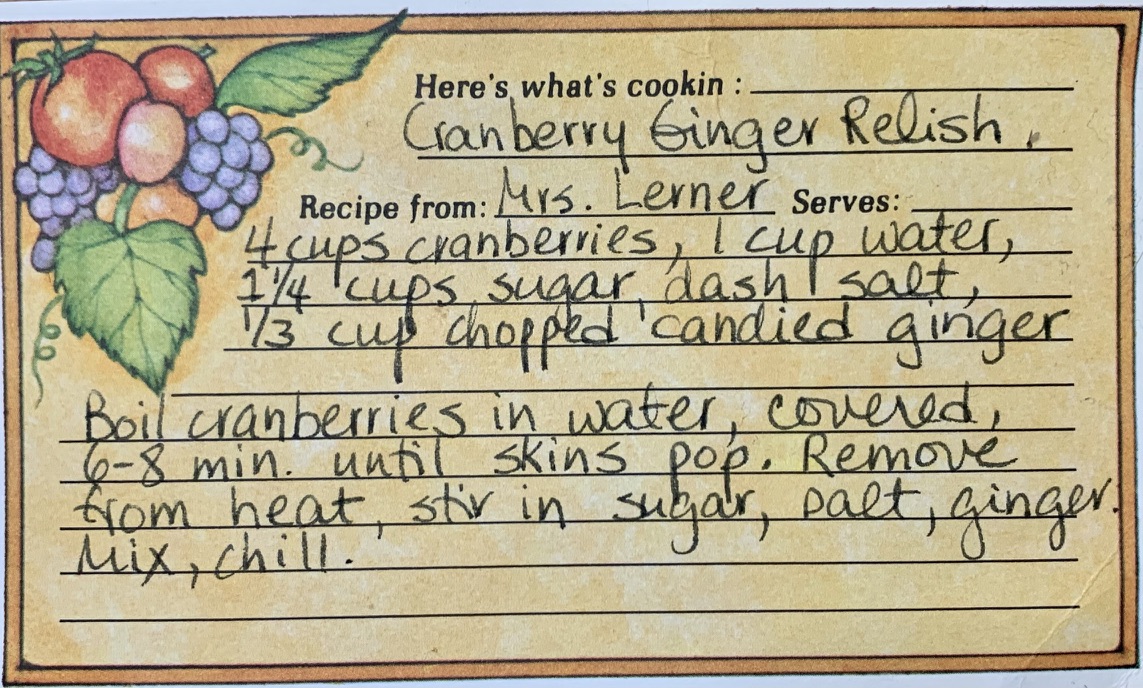 Here's what's cookin :
Cranberry Ginger Relish.
Recipe from: Mrs. Lerner Serves:
4 cups cranberries, 1 cup water,
1 1/4 cups sugar, dash salt,
1/3 cup chopped candied ginger
Boil cranberries in water, covered,
6-8 min. until skins pop. Remove
from heat, stir in sugar, salt, ginger.
Mix, chill.